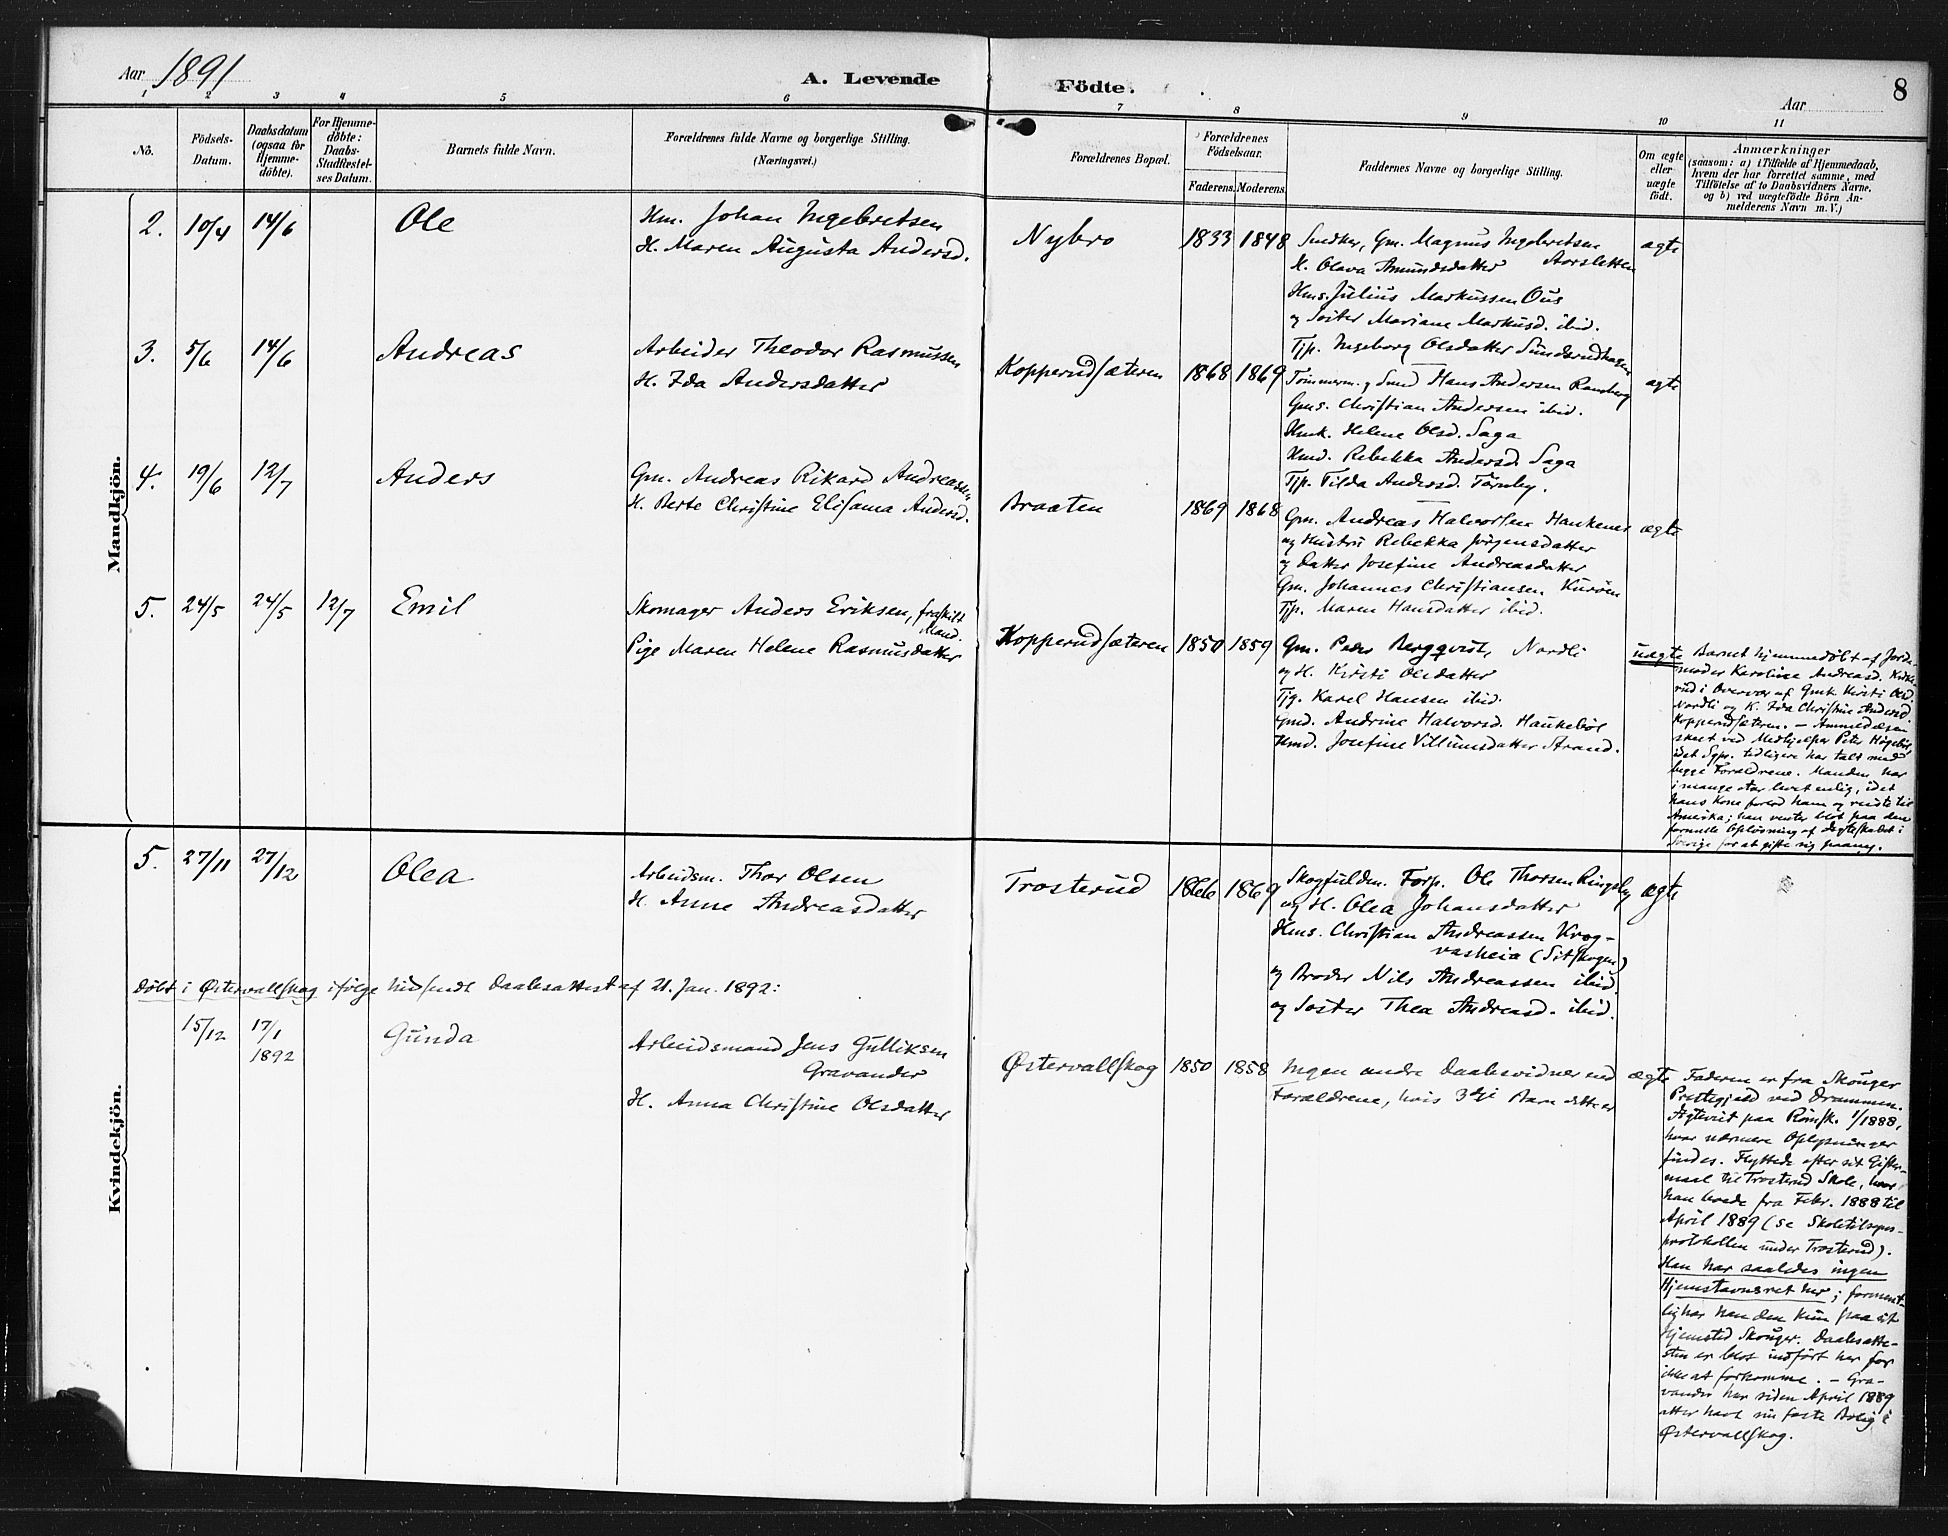 Aar 1891
A. Levende Födte.
Aar
8
1 2 3 4 5 6 7 8 9 10 11
No.
Födsels-Datum.
Daabsdatum (ogsaa for Hjemme-döbte).
For Hjemme-döbte: Daabs-Stadfæstel-ses Datum.
Barnets fulde Navn.
Forældrenes fulde Navne og borgerlige Stilling.
(Næringsvei.)
Forældrenes Bopæl.
Forældrenes Födselsaar.
Faderens. Moderens.
Faddernes Navne og borgerlige Stilling.
Om ægte eller uægte födt.
Anmærkninger
(saasom: a) i Tilfælde af Hjemmedaab,
hvem der har forrettet samme, med
Tilföielse af to Daabsvidners Navne.
og b) ved uægtefödte Börn An-
melderens Navn m. V.)
Mandkjön.
2. 10/4 14/6 Ole
Hm. Johan Ingebretsen
H. Maren Augusta Andersd.
Nybro 1833 1848
Snedker, Gm. Magnus Ingebretsen
K. Olava Amundsdatter Aarsletten
Hms. Julius Markussen Ous
og Søster Mariane Markusd. ibid.
Tjp. Ingeborg Olsdatter Sundsrudhagen
ægte
3. 5/6 14/6 Andreas
Arbeider Theodor Rasmussen
H. Ida Andersdatter
Kopperudsæteren 1868 1869
Tømmerm. og Smed Hans Andersen Ramberg
Gms. Christian Andersen ibid.
Hmk. Helene Olsd. Saga
Hmd. Rebekka Andersd. Saga
Tjp. Tilda Andersd. Tørnby.
ægte
4. 19/6 12/7 Anders
Gm. Andreas Rikard Andreassen
H. Berte Christine Elisama Andersd.
Braaten 1869 1868
Gm. Andreas Halvorsen Haukenes
og Hustru Rebekka Jørgensdatter
og Datter Josefine Andreasdatter
Gm. Johannes Christiansen Kurøen
Tjp. Maren Hansdatter ibid.
ægte
5. 24/5 24/5 12/7 Emil
Skomager Anders Eriksen, fraskilt
Mand.
Pige Maren Helene Rasmusdatter
Kopperudsæteren 1850 1859
Gm. Peder Bergqvist, Nordli
og H. Kirsti Olsdatter
Tjg. Karel Hansen ibid.
Gmd. Andrine Halvorsd. Haukebøl
Hmd. Josefine Villumsdatter Strand.
uægte
Barnet hjemmedøbt af Jorde-
moder Karoline Andreasd.
rud i Overvær af Gmk. Kirsti Olsd.
Nordli og K. Ida Christine Andersd.
Kopperudsæteren. — Anmeldelsen
skeet ved Medhjelper Peter Høgebøl,
idet Sgpr. tidligere har talt med
begge Forældrene. Manden har
i mange Aar levet enlig, idet
hans Kone forlod ham og reiste til
Amerika; han venter blot paa den
formelle Opløsning af Ægteskabet i
Sverige for at gifte sig paany.
Kvindekjön.
5. 27/11 27/12 Olea
Arbeidsm. Thor Olsen
H. Anne Andreasdatter
Trosterud 1866 1869
Skogfuldm. Forp. Ole Thorsen Ringsby
og H. Olea Johansdatter
Hms. Christian Andreassen Krog-
vasheia (Sitskogen)
og Broder Nils Andreassen ibid.
og Søster Thea Andreasd. ibid.
ægte
Døbt i Østervallskog ifølge hidsendt Daabsattest af 21. Jan. 1892:
15/12 17/1
1892
Gunda
Arbeidsmand Jens Gulliksen
Gravander
H. Anna Christine Olsdatter
Østervallskog 1850 1858
Ingen andre Daabsvidner end
Forældrene, hvis 3die Barn dette er
ægte
Faderen er fra Skouger
Prestegjeld ved Drammen.
Ægteviet paa Rømsk. 1/1 1888,
hvor nærmere Oplysninger
findes. Flyttede efter sit Gifter-
maal til Trosterud Skole, hvor
han boede fra Febr. 1888 til
April 1889 (se Skoletilsyns-
protokollen under Trosterud).
Han har saaledes ingen
Hjemstavnsret her; forment-
lig har han den kun paa sit
Hjemsted Skouger. Daabsatte-
sten er blot indført her for
ikke at forkomme. — Gra-
vander har siden April 1889
atter havt sin faste Bolig i
Østervallskog.